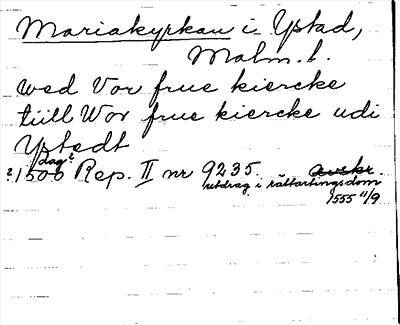 Mariakyrkan i Ystad,
Malm. l.
wed Vor frue kiercke
tiill Wor frue kiercke udi
Ystedt
dag?
? 1500 Rep. II nr 9235. avskr.
utdrag i rättartingsdom
1555 11/9